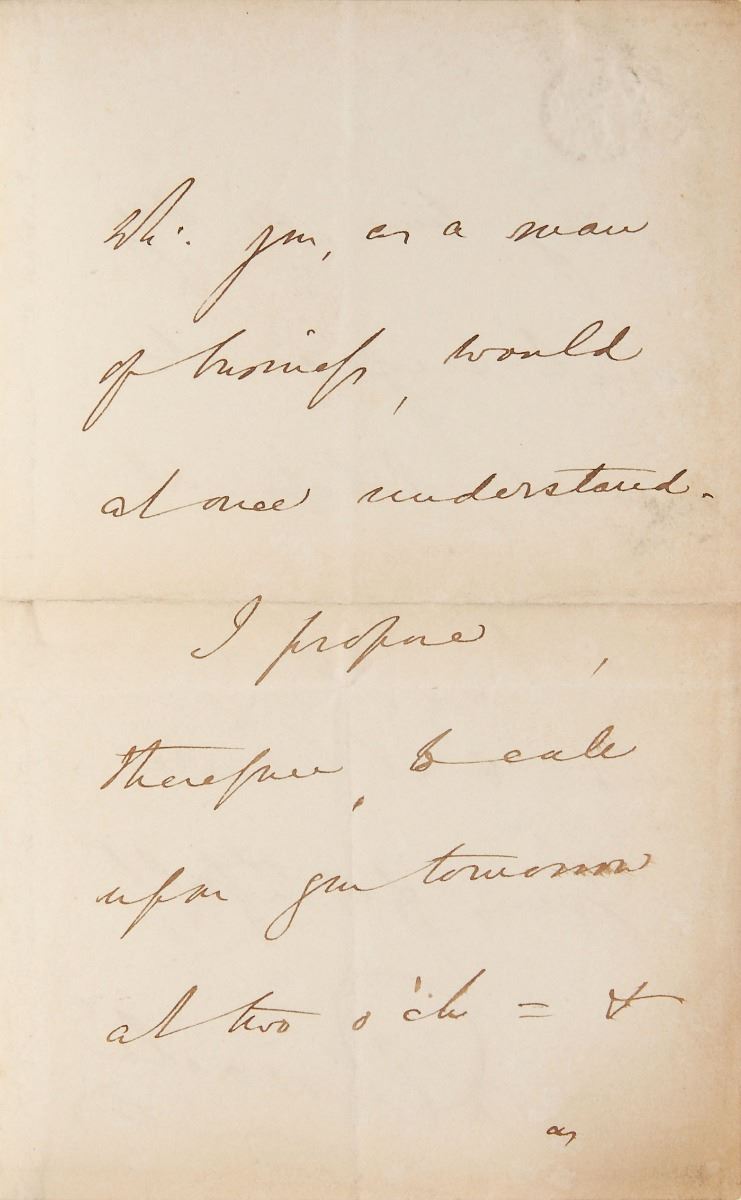 Wh: you, as a man
of business, would
at once understand.
I propose,
therefore, to call
upon you tomorrow
at two o'ck = &
as